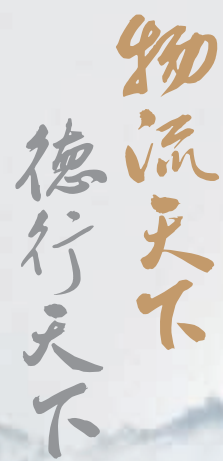 物流天下
德行天下